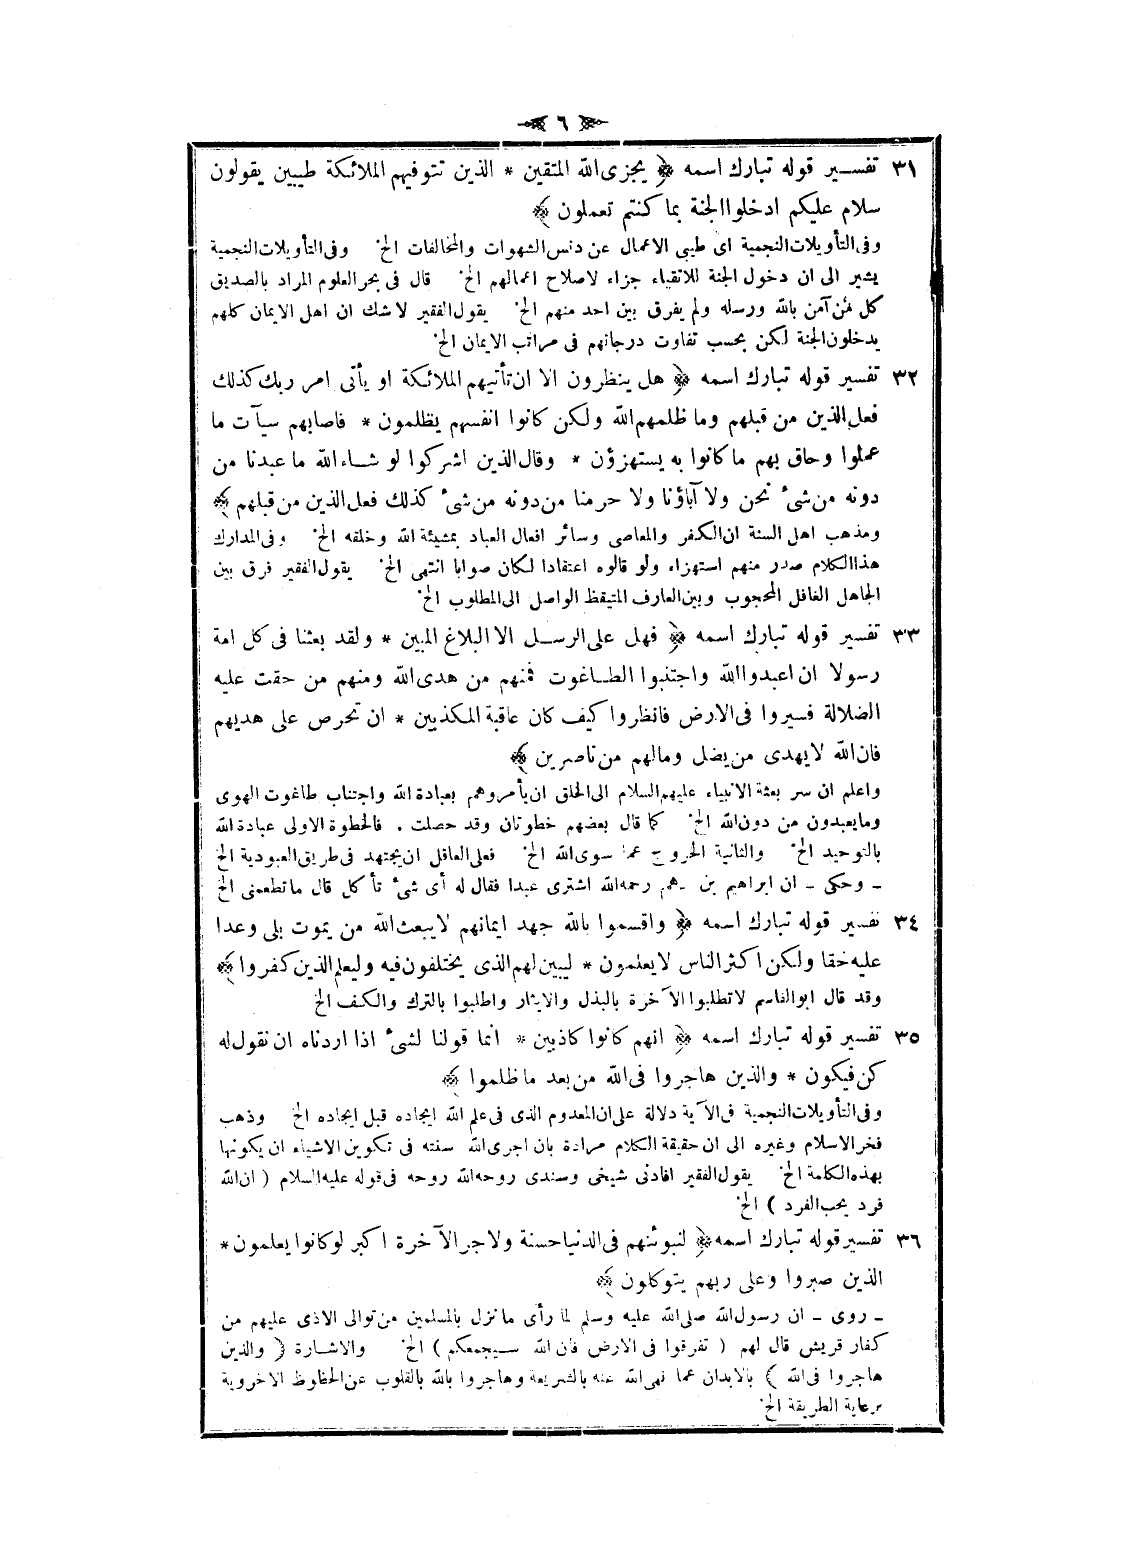 ٦
٣١ تفسير قوله تبارك اسمه ﴿ يجزى الله المتقين * الذين تتوفيهم الملائكة طيبين يقولون
سلام عليكم ادخلوا الجنة بما كنتم تعملون ﴾
وفى التأويلات النجمية اى طيبى الاعمال عن دنس الشهوات والمخالفات الخ وفى التأويلات النجمية
يشير الى ان دخول الجنة للاتقياء جزاء لاصلاح اعمالهم الخ قال فى بحر العلوم المراد بالصديق
كل من آمن بالله ورسله ولم يفرق بين احد منهم الخ يقول الفقير لا شك ان اهل الايمان كلهم
يدخلون الجنة لكن بحسب تفاوت درجاتهم فى مراتب الايمان الخ
٣٢ تفسير قوله تبارك اسمه ﴿ هل ينظرون الا ان تأتيهم الملائكة او يأتى امر ربك كذلك
فعل الذين من قبلهم وما ظلمهم الله ولكن كانوا انفسهم يظلمون * فاصابهم سيآت ما
عملوا وحاق بهم ما كانوا به يستهزؤن * وقال الذين اشركوا لو شاء الله ما عبدنا من
دونه من شىء نحن ولا آباؤنا ولا حرمنا من دونه من شىء كذلك فعل الذين من قبلهم ﴾
ومذهب اهل السنة ان الكفر والمعاصى وسائر افعال العباد بمشيئة الله وخلقه الخ وفى المدارك
هذا الكلام صدر منهم استهزاء ولو قالوه اعتقادا لكان صوابا انتهى الخ يقول الفقير فرق بين
الجاهل الغافل المحجوب وبين العارف المتيقظ الواصل الى المطلوب الخ
٣٣ تفسير قوله تبارك اسمه ﴿ فهل على الرسل الا البلاغ المبين * ولقد بعثنا فى كل امة
رسولا ان اعبدوا الله واجتنبوا الطاغوت فمنهم من هدى الله ومنهم من حقت عليه
الضلالة فسيروا فى الارض فانظروا كيف كان عاقبة المكذبين * ان تحرص على هديهم
فان الله لا يهدى من يضل ومالهم من ناصرين ﴾
واعلم ان سر بعثة الانبياء عليهم السلام الى الخلق ان يأمروهم بعبادة الله واجتناب طاغوت الهوى
وما يعبدون من دون الله الخ كما قال بعضهم خطوتان وقد حصلت . فالخطوة الاولى عبادة الله
بالتوحيد الخ والثانية الخروج عما سوى الله الخ فعلى العاقل ان يجتهد فى طريق العبودية الخ
ـ وحكى ـ ان ابراهيم بن رحمه الله اشترى عبدا فقال له أى شىء تأكل قال ما تطعمنى الخ
٣٤ تفسير قوله تبارك اسمه ﴿ واقسموا بالله جهد ايمانهم لا يبعث الله من يموت بلى وعدا
عليه حقا ولكن اكثر الناس لا يعلمون * ليبين لهم الذى يختلفون فيه وليعلم الذين كفروا ﴾
وقد قال ابو القاسم لا تطلبوا الآخرة بالبذل والايثار واطلبوا بالترك والكف الخ
٣٥ تفسير قوله تبارك اسمه ﴿ انهم كانوا كاذبين * انما قولنا لشىء اذا اردناه ان نقول له
كن فيكون * والذين هاجروا فى الله من بعد ما ظلموا ﴾
وفى التأويلات النجمية فى الآية دلالة على ان المعدوم الذى فى علم الله ايجاده قبل ايجاده الخ وذهب
فخر الاسلام وغيره الى ان حقيقة الكلام مرادة بان اجرى الله سنته فى تكوين الاشياء ان يكونها
بهذه الكلمة الخ يقول الفقير افادنى شيخى وسندى روحه الله روحه فى قوله عليه السلام ( ان الله
فرد يحب الفرد ) الخ
٣٦ تفسير قوله تبارك اسمه ﴿ لنبوئنهم فى الدنيا حسنة ولاجر الآخرة اكبر لو كانوا يعلمون *
الذين صبروا وعلى ربهم يتوكلون ﴾
ـ روى ـ ان رسول الله صلى الله عليه وسلم لما رأى ما نزل بالمسلمين من توالى الاذى عليهم من
كفار قريش قال لهم ( تفرقوا فى الارض فان الله سيجمعكم ) الخ والاشارة ( والذين
هاجروا فى الله ) بالابدان عما نهى الله عنه بالشريعة وهاجروا بالله بالقلوب عن الحظوظ الاخروية
برعاية الطريقة الخ